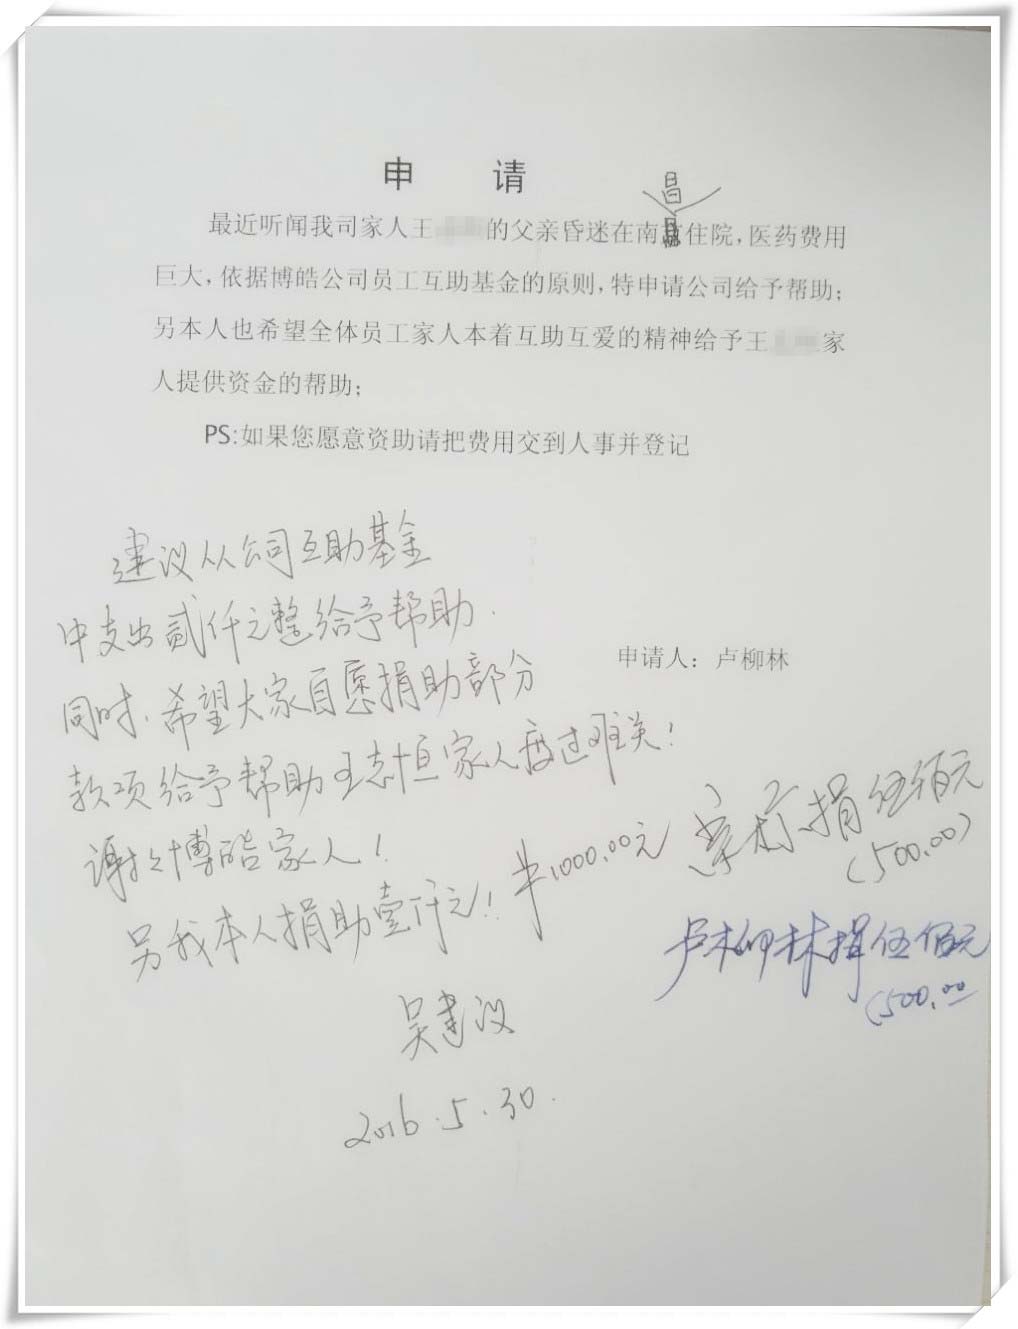 申 请
昌
最近听闻我司家人王的父亲昏迷在南住院，医药费用
巨大，依据博皓公司员工互助基金的原则，特申请公司给予帮助；
另本人也希望全体员工家人本着互助互爱的精神给予王家
人提供资金的帮助；
PS:如果您愿意资助请把费用交到人事并登记
建议从公司互助基金
中支出贰仟元整给予帮助.
申请人：卢柳林
同时，希望大家自愿捐助部分
款项给予帮助王志恒家人度过难关！
谢谢博皓家人！
另我本人捐助壹仟元！¥1000.00元
捐伍佰元
(500.00)
卢柳林捐伍佰元
(500.00
吴建议
2016.5.30.